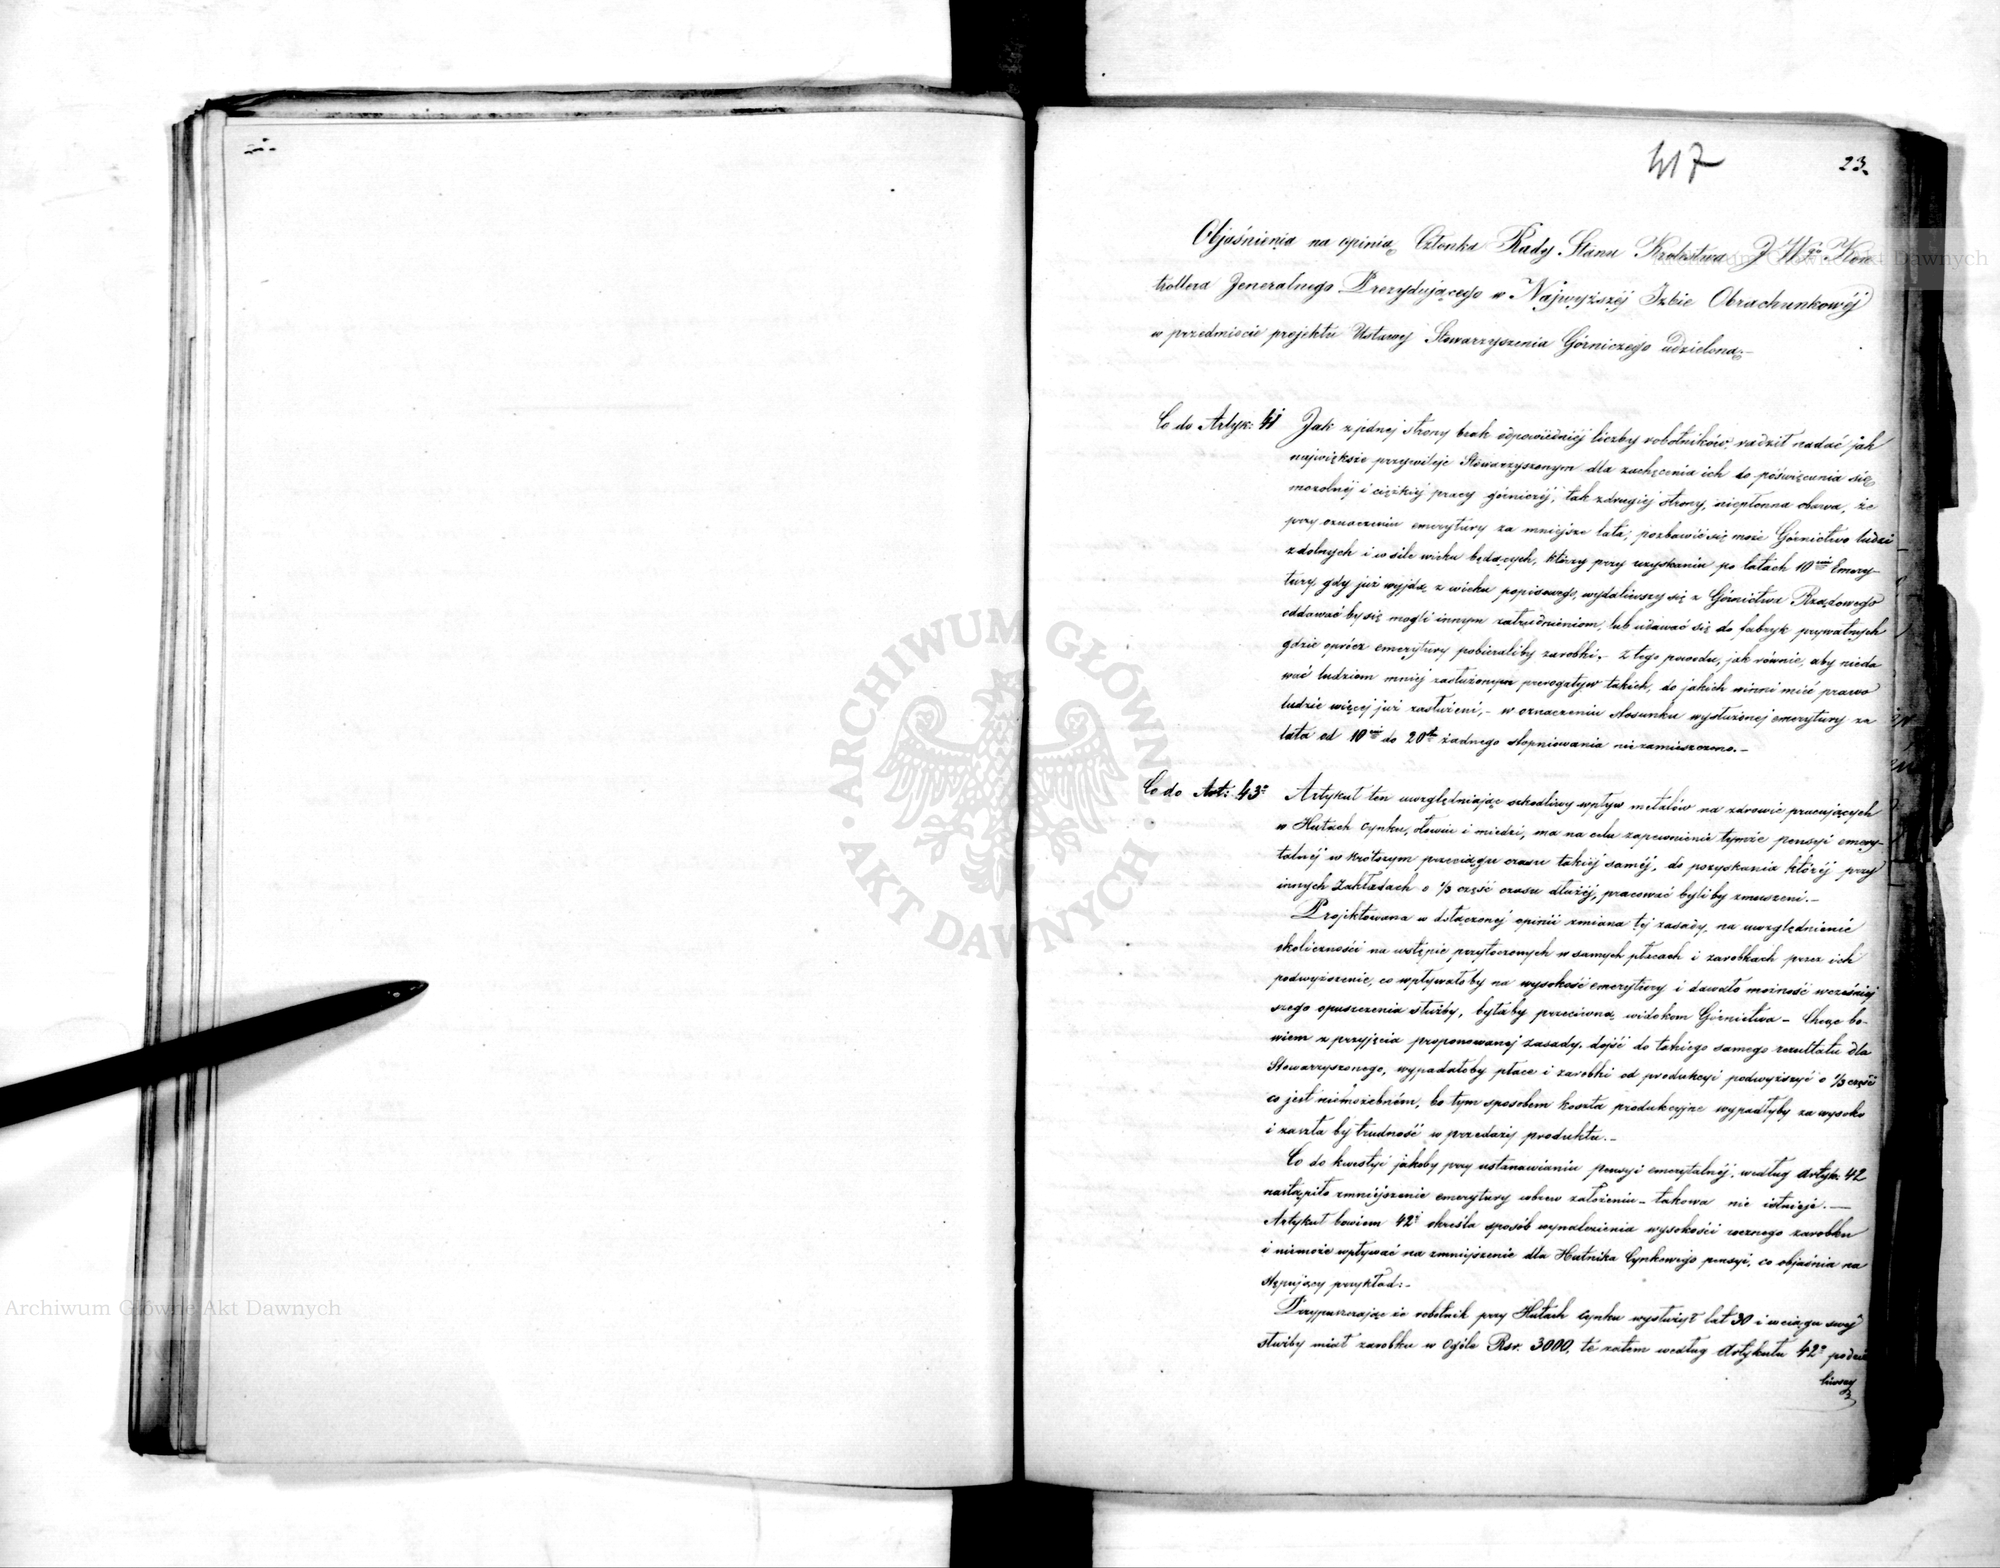 417
23.
Objaśnienia na opinią Członka Rady Stanu Królestwa J Wgo Kon
trollera Jeneralnego Prezydującego w Najwyższej Izbie Obrachunkowéj
w przedmiocie projektu Ustawy Stowarzyszenia Górniczego udzieloną.–
Co do Artyk: 41 Jak z jednej strony brak odpowiedniéj liczby robotników, radził nadać jak
największe przywileje Stowarzyszonym dla zachęcenia ich do poświęcenia się
mozolnéj i ciężkiej pracy górniczéj, tak z drugiej strony, niepłonna obawa, że
przy oznaczeniu emerytury za mniejsze lata, pozbawić się może Górnictwo ludzi
zdolnych i w sile wieku będących, którzy przy uzyskaniu po latach 10ciu Emery-
tury, gdy już wyjdą z wieku popisowego, wydaliwszy się z Górnictwa Rządowego
oddawać by się mogli innym zatrudnieniom, lub udawać się do fabryk prywatnych
gdzie oprócz emerytury pobieraliby zarobki.– Z tego powodu, jak równie, aby nieda
wać ludziom mniej zasłużonym prerogatyw takich, do jakich winni mieć prawo
ludzie więcej już zasłużeni,– w oznaczeniu stosunku wysłużonej emerytury za
lata od 10ciu do 20tu żadnego stopniowania niezamieszczono.–
Co do Art: 43o Artykuł ten uwzględniając szkodliwy wpływ metalów na zdrowie pracujących
w Hutach cynku, ołowiu i miedzi, ma na celu zapewnienie tymże pensyi emery-
talnéj w krótszym przeciągu czasu takiéj saméj, do pozyskania któréj przy
innych Zakładach o 1/3 część czasu dłużéj, pracować byliby zmuszeni.–
Projektowana w dołączonej opinii zmiana téj zasady, na uwzględnienie
okoliczności na wstępie przytoczonych w samych płacach i zarobkach przez ich
podwyższenie, co wpływałoby na wysokość emerytury i dawało możność wcześniej
szego opuszczenia służby, byłaby przeciwną widokom Górnictwa – Chcąc bo-
wiem z przyjęcia proponowanej zasady, dojść do takiego samego rezultatu dla
Stowarzyszonego, wypadałoby płace i zarobki od produkcyi podwyższyć o 1/3 część
co jest niemożebném, bo tym sposobem koszta produkcyjne wypadłyby za wysoko
i zaszła by trudność w przedaży produktu.–
Co do kwestyi jakoby przy ustanawianiu pensyi emerytalnéj, według Artyk: 42
nastąpiło zmniejszenie emerytury wbrew założeniu – takowa nie istnieje.–
Artykuł bowiem 42i określa sposób wynalezienia wysokości rocznego zarobku
i niemoże wpływać na zmniejszenie dla Hutnika Cynkowego pensyi, co objaśnia na
stępujący przykład:–
Przypuszczając że robotnik przy Hutach cynku wysłużył lat 30 i w ciągu swéj
służby miał zarobku w ogóle Rsr. 3000, te zatem według Artykułu 42o podzie
liwszy
ARCHIWUM GŁÓWNE AKT DAWNYCH
Archiwum Główne Akt Dawnych
Archiwum Główne Akt Dawnych